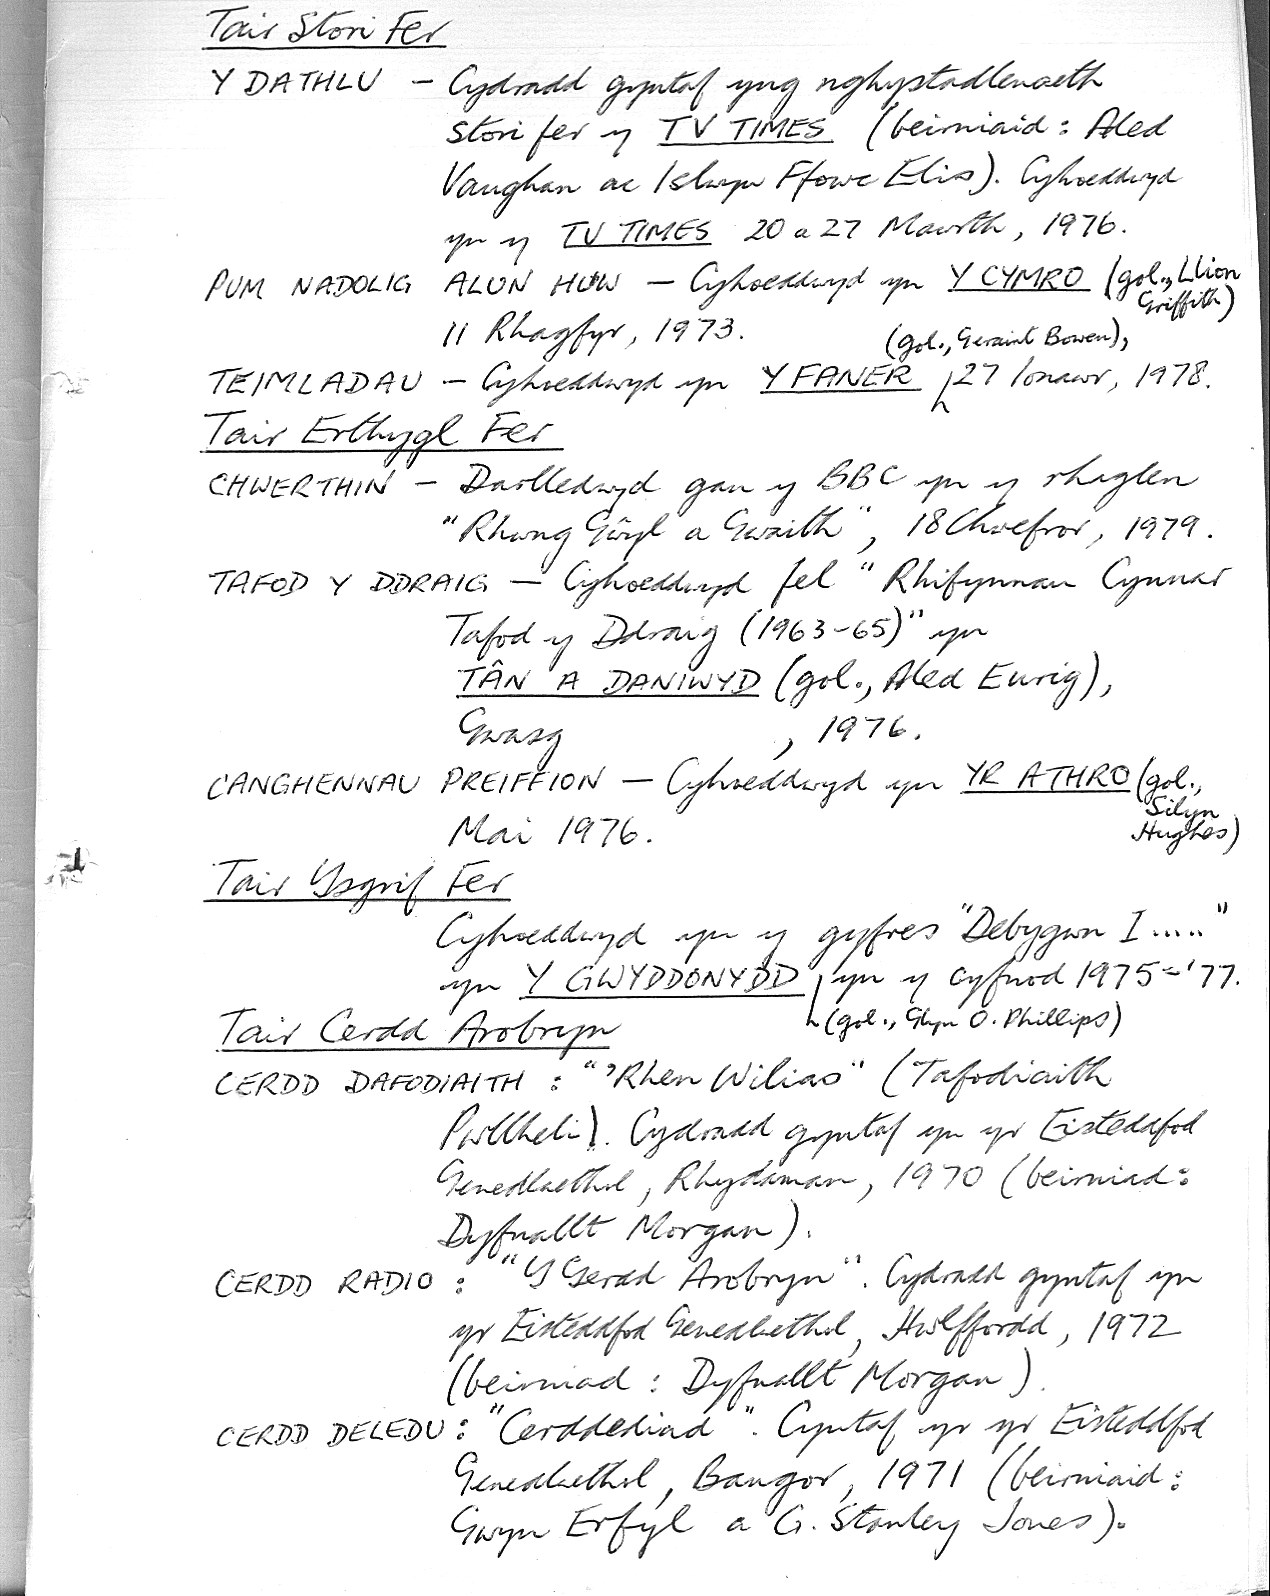 Tair Stori Fer
Y DATHLU – Cydradd gyntaf yng nghystadlenaeth
stori fer y TV TIMES (beirniaid: Aled
Vaughan ac Islwyn Ffowc Elis). Cyhoeddwyd
yn y TV TIMES 20 a 27 Mawrth, 1976.
PUM NADOLIG ALUN HUW – Cyhoeddwyd yn Y CYMRO (gol., Llion
Griffith)
11 Rhagfyr, 1973.
(gol., Geraint Bowen),
TEIMLADAU – Cyhoeddwyd yn Y FANER 27 Ionawr, 1978.
Tair Erthygl Fer
CHWERTHIN – Darlledwyd gan y BBC yn y rhaglen
"Rhwng Gŵyl a Gwaith", 18 Chwefror, 1979.
TAFOD Y DDRAIG – Cyhoeddwyd fel "Rhifynnau Cynnar
Tafod y Ddraig (1963-65)" yn
TÂN A DANIWYD (gol., Aled Eurig),
Gwasg , 1976.
CANGHENNAU PREIFFION – Cyhoeddwyd yn YR ATHRO (gol.,
Silyn
Hughes)
Mai 1976.
Tair Ysgrif Fer
Cyhoeddwyd yn y gyfres "Debygwn I....."
yn Y GWYDDONYDD yn y cyfnod 1975-'77.
(gol., Glyn O. Phillips)
Tair Cerdd Arobryn
CERDD DAFODIAITH : "'Rhen Wilias" (Tafodiaith
Pwllheli). Cydradd gyntaf yn yr Eisteddfod
Genedlaethol, Rhydaman, 1970 (beirniad:
Dyfnallt Morgan).
CERDD RADIO : "Y Gerdd Arobryn". Cydradd gyntaf yn
yr Eisteddfod Genedlaethol, Hwlffordd, 1972
(beirniad : Dyfnallt Morgan).
CERDD DELEDU : "Cerddediad". Cyntaf yr yr Eisteddfod
Genedlaethol, Bangor, 1971 (beirniaid:
Gwyn Erfyl a G. Stanley Jones).